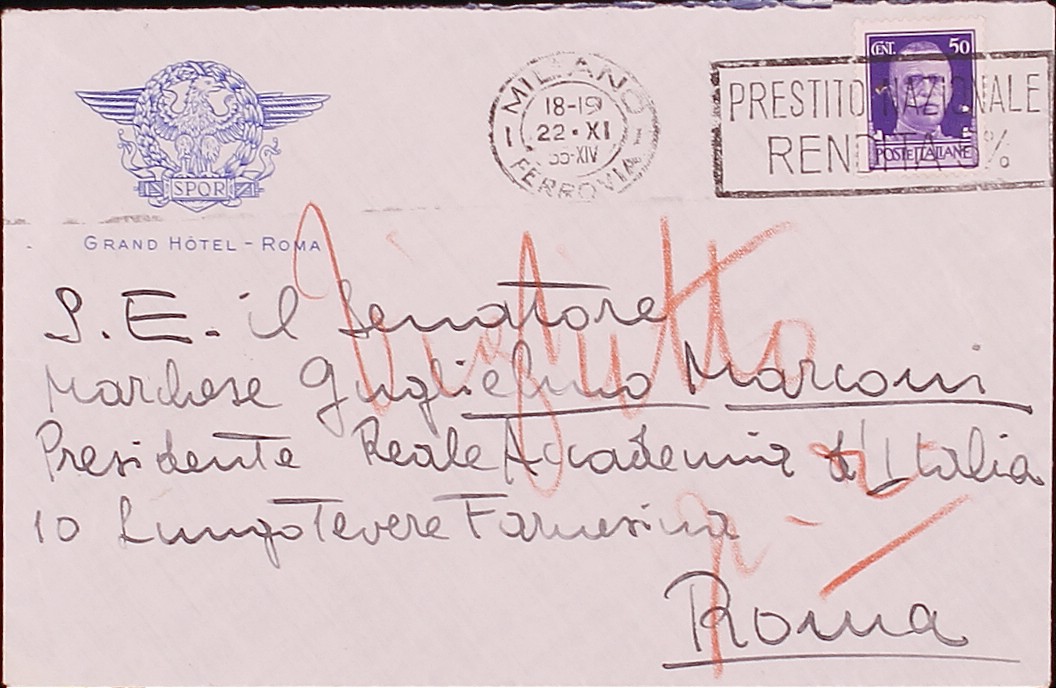 SPQR
GRAND HÔTEL - ROMA
MILANO
18-19
22 • XI
35-XIV
FERROVIA
PRESTITO NAZIONALE
RENDITA %
CENT. 50
POSTE ITALIANE
S. E. il Senatore
Marchese Guglielmo Marconi
Presidente Reale Accademia d'Italia
10 LungoTevere Farnesina
Roma